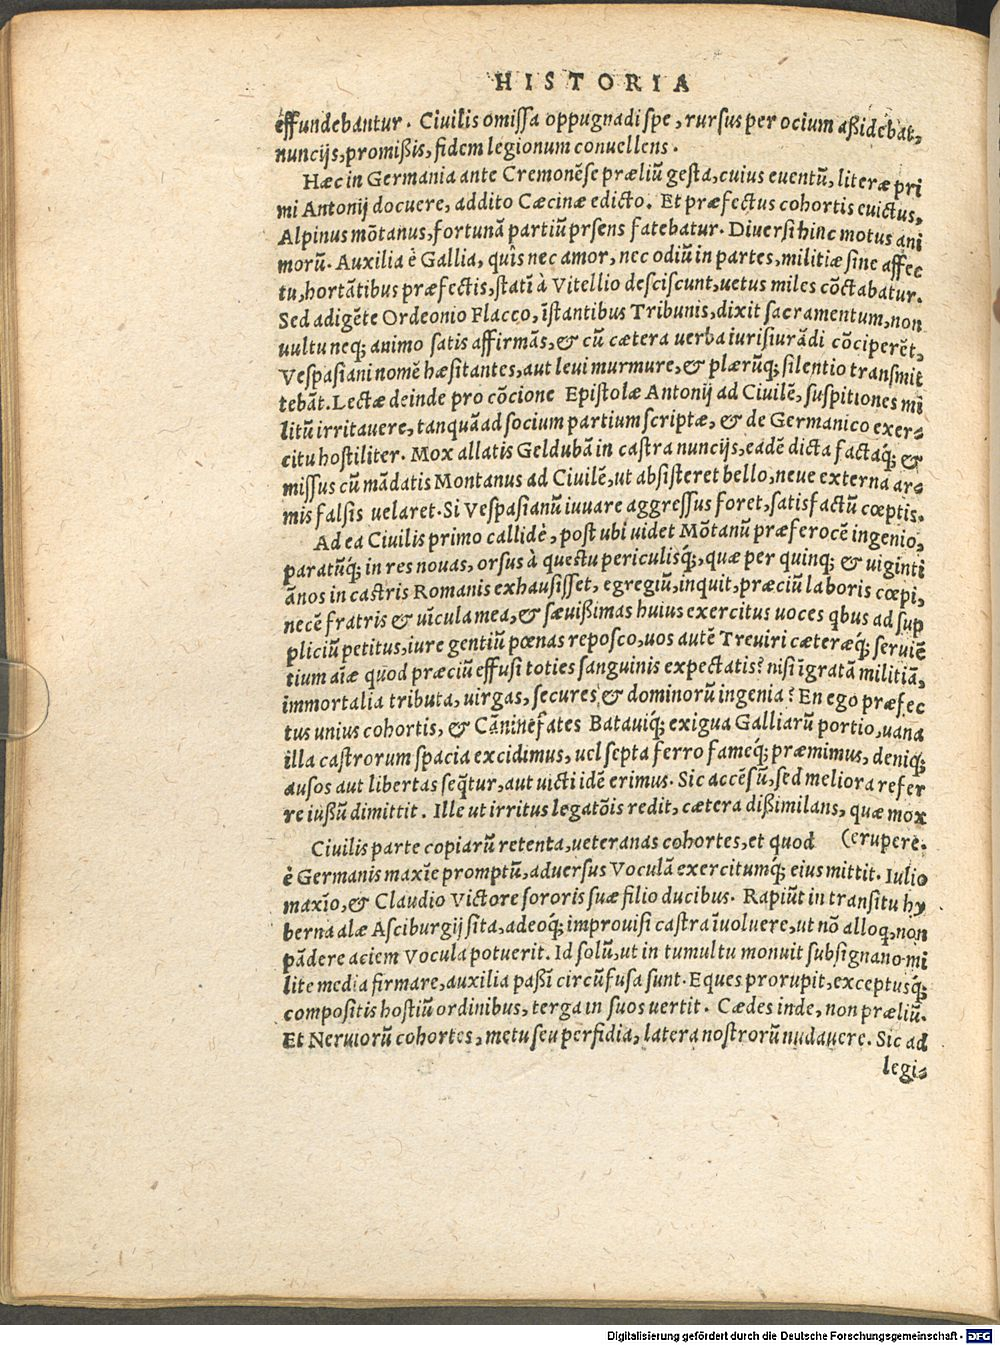 HISTORIA
effundebantur. Ciuilis omissa oppugnādi spe, rursus per ocium aßidebat,
nuncijs, promißis, fidem legionum conuellens.
Hæc in Germania ante Cremonēse præliū gesta, cuius euentū, literæ pri
mi Antonij docuere, addito Cæcinæ edicto. Et præfectus cohortis euictus,
Alpinus mōtanus, fortunā partiū prsens fatebatur. Diuersi hinc motus ani
morū. Auxilia è Gallia, quîs nec amor, nec odiū in partes, militiæ sine affec
tu, hortātibus præfectis, statī à Vitellio desciscunt, uetus miles cōctabatur.
Sed adigēte Ordeonio Flacco, īstantibus Tribunis, dixit sacramentum, non
uultu neq; animo satis affirmās, & cū cætera uerba iurisiurādi cōciperēt,
Vespasiani nomē hæsitantes, aut leui murmure, & plærūq; silentio transmit
tebāt. Lectæ deinde pro cōcione Epistolæ Antonij ad Ciuilē, suspitiones mi
litū irritauere, tanquā ad socium partium scriptæ, & de Germanico exer-
citu hostiliter. Mox allatis Geldubā in castra nuncijs, eadē dicta factaq́; &
missus cū mādatis Montanus ad Ciuilē, ut absisteret bello, neue externa ar-
mis falsis uelaret. Si Vespasianū iuuare aggressus foret, satisfactū cœptis.
Ad ea Ciuilis primo callidè, post ubi uidet Mōtanū præferocē ingenio,
paratūq́; in res nouas, orsus à questu periculisq́;, quæ per quinq; & uiginti
ānos in castris Romanis exhausisset, egregiū, inquit, præciū laboris cœpi,
necē fratris & uīcula mea, & sæuißimas huius exercitus uoces qbus ad sup
pliciū petitus, iure gentiū pœnas reposco, uos autē Treuiri cæteræq́; seruiē
tium aīæ quod præciū effusi toties sanguinis expectatis? nisi īgratā militiā,
immortalia tributa, uirgas, secures & dominorū ingenia? En ego præfec
tus unius cohortis, & Cāninefates Batauiq́; exigua Galliarū portio, uana
illa castrorum spacia excidimus, uel septa ferro fameq́; præmimus, deniq;
ausos aut libertas seq̄tur, aut uicti idē erimus. Sic accēsū, sed meliora refer
re iußū dimittit. Ille ut irritus legatōis redit, cætera dißimilans, quæ mox
(erupere.
Ciuilis parte copiarū retenta, ueteranas cohortes, et quod
è Germanis maxīe promptū, aduersus Voculā exercitumq́; eius mittit. Iulio
maxīo, & Claudio Victore sororis suæ filio ducibus. Rapiūt in transitu hy
berna alæ Asciburgij sita, adeoq́; improuisi castra īuoluere, ut nō alloq, non
pādere aciem Vocula potuerit. Id solū, ut in tumultu monuit subsignano mi
lite media firmare, auxilia paßī circūfusa sunt. Eques prorupit, exceptusq́;
compositis hostiū ordinibus, terga in suos uertit. Cædes inde, non præliū.
Et Neruiorū cohortes, metu seu perfidia, latera nostrorū nudauere. Sic ad
legi-
Digitalisierung gefördert durch die Deutsche Forschungsgemeinschaft - DFG